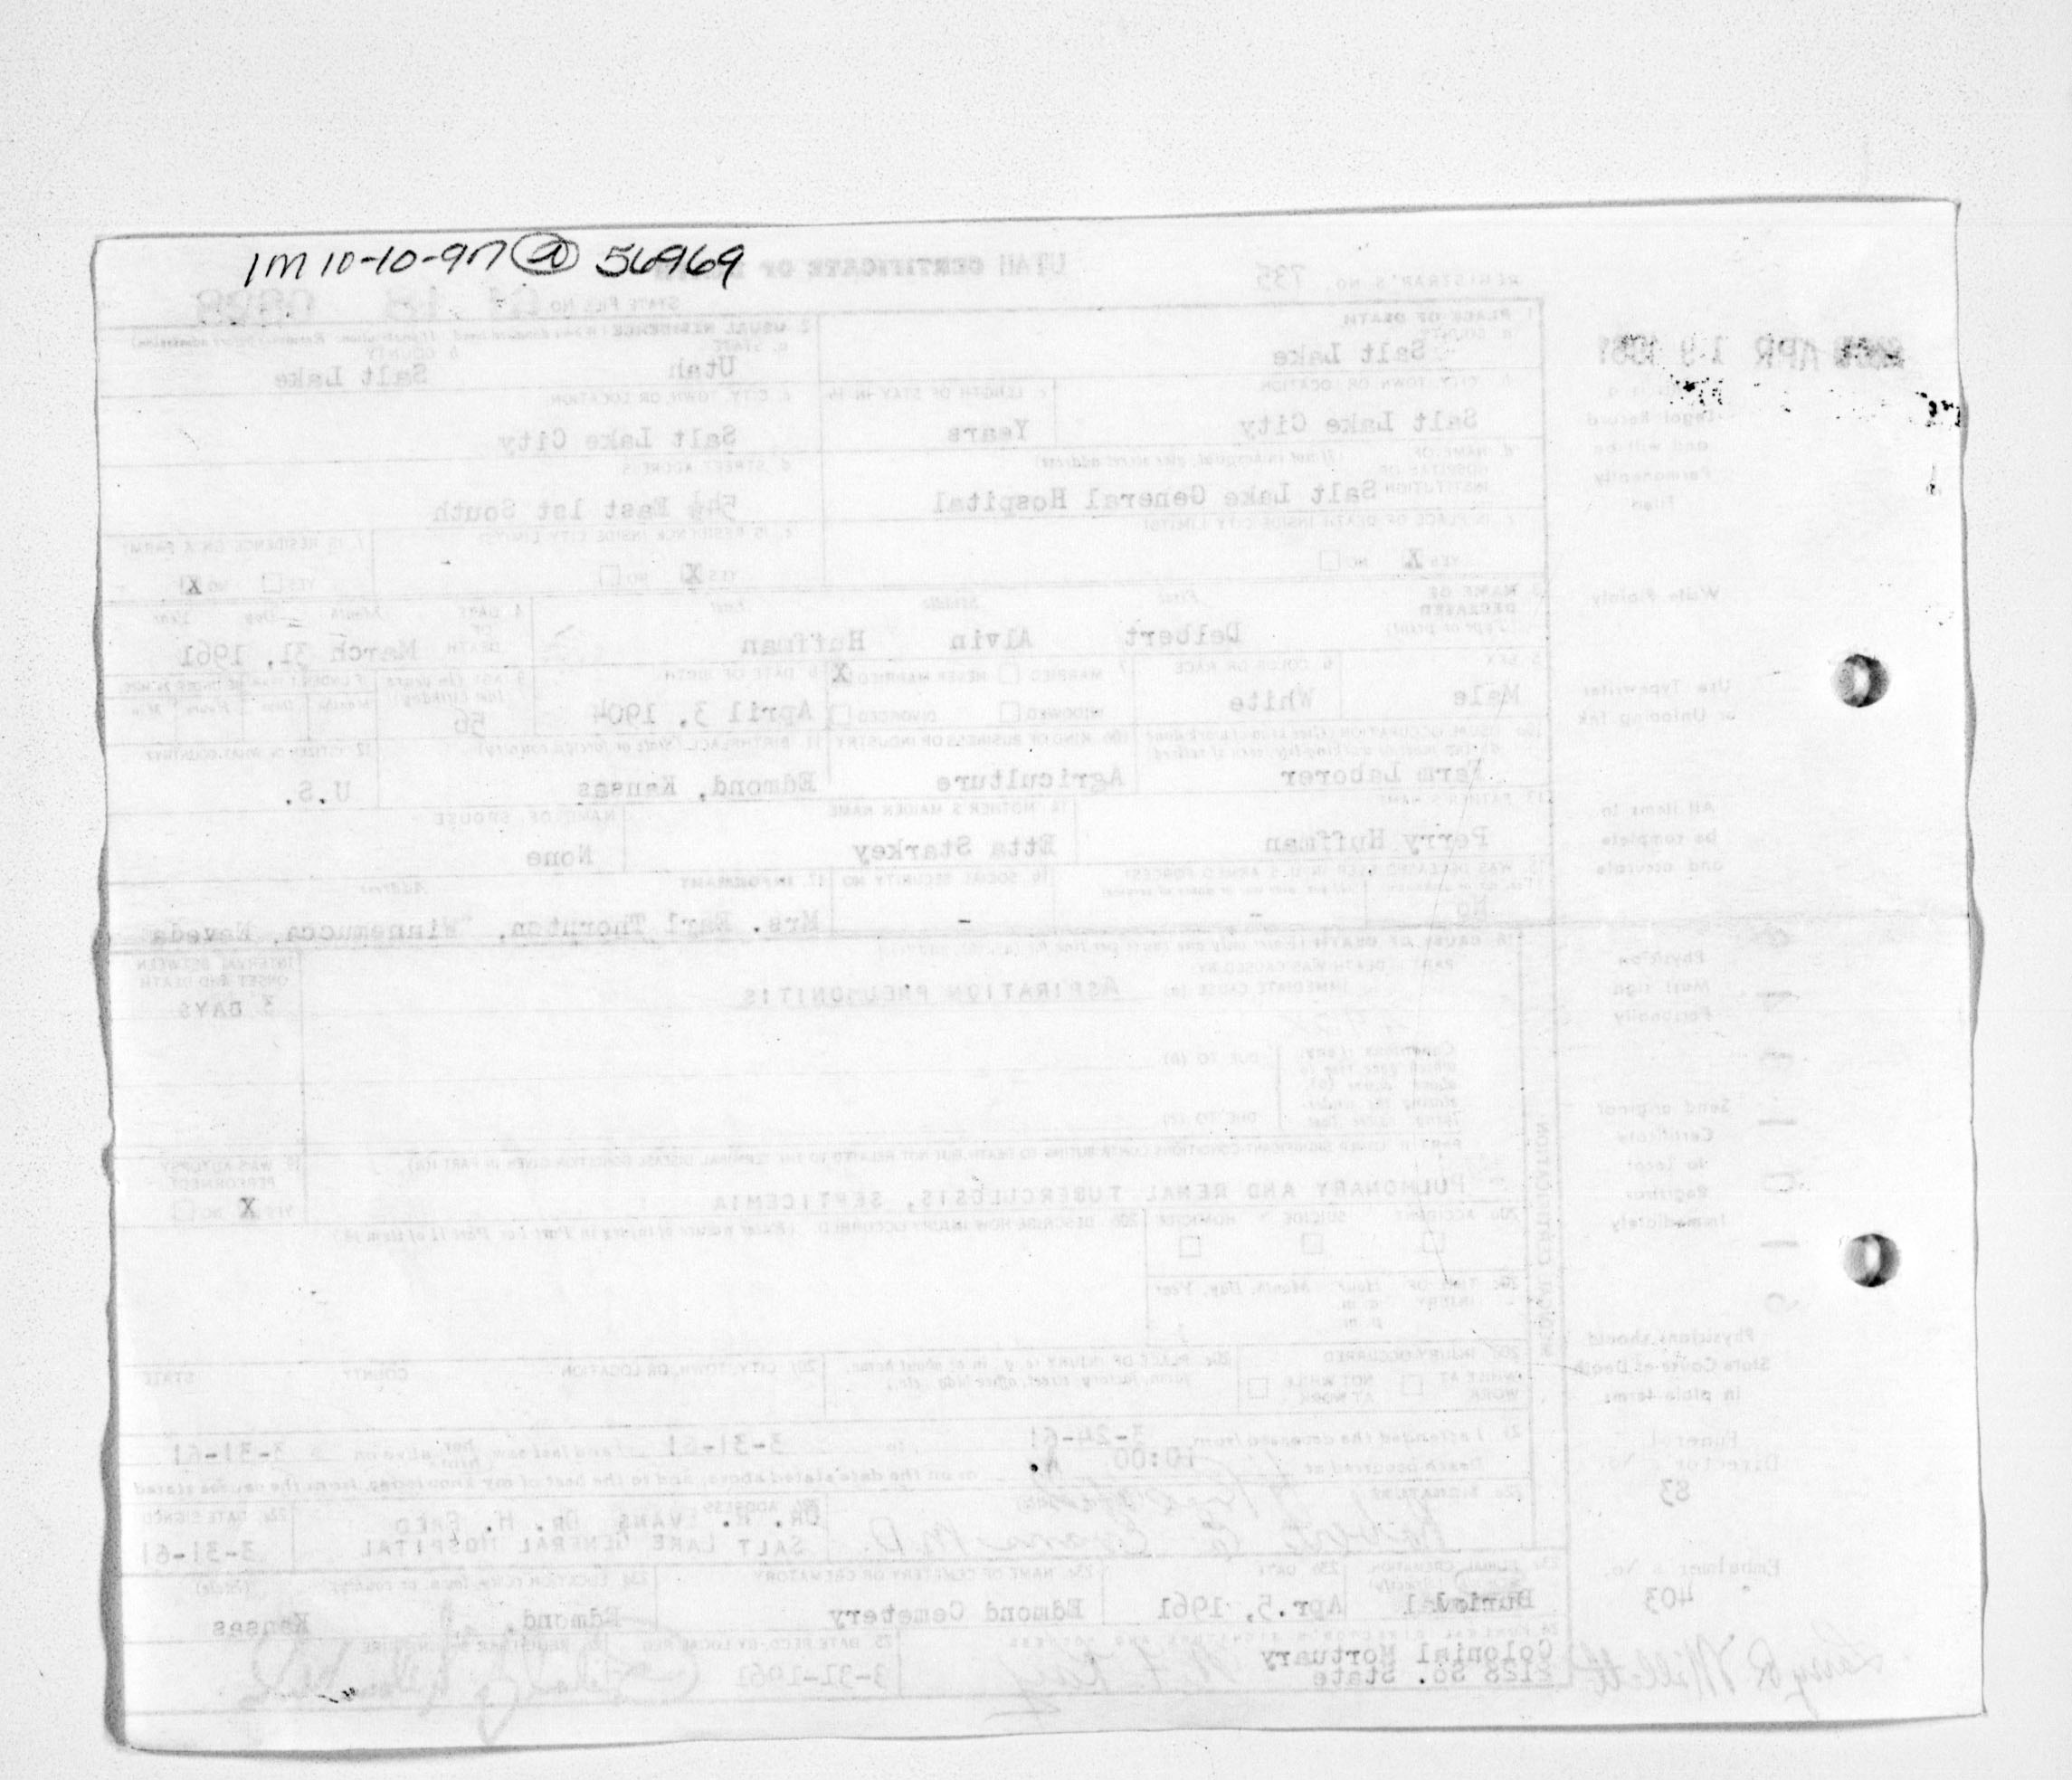 1M 10-10-97 56969
UTAH CERTIFICATE OF
REGISTRAR'S NO. 735
STATE FILE NO
APR 19 1961
1 PLACE OF DEATH
a COUNTY
Salt Lake
2. USUAL RESIDENCE
a. STATE
Utah
b COUNTY
Salt Lake
b. CITY, TOWN OR LOCATION
Salt Lake City
c LENGTH OF STAY IN 1b
Years
c. CITY, TOWN OR LOCATION
Salt Lake City
d. NAME OF HOSPITAL OR INSTITUTION
(If not in hospital, give street address)
Salt Lake General Hospital
d STREET ADDRESS
54½ East 1st South
e. IS PLACE OF DEATH INSIDE CITY LIMITS?
YES X NO
e. IS RESIDENCE INSIDE CITY LIMITS?
YES X NO
f. IS RESIDENCE ON A FARM?
YES NO X
3 NAME OF DECEASED
(Type or print)
First Middle Last
Delbert Alvin Huffman
4 DATE OF DEATH
Month Day Year
March 31, 1961
5 SEX
Male
6 COLOR OR RACE
White
7 MARRIED NEVER MARRIED X
WIDOWED DIVORCED
8 DATE OF BIRTH
April 3, 1904
9 AGE (In years last birthday)
56
10a USUAL OCCUPATION
Farm Laborer
10b KIND OF BUSINESS OR INDUSTRY
Agriculture
11 BIRTHPLACE (State or foreign country)
Edmond, Kansas
12 CITIZEN OF WHAT COUNTRY?
U.S.
13 FATHER'S NAME
Perry Huffman
14 MOTHER'S MAIDEN NAME
Etta Starkey
NAME OF SPOUSE
None
15 WAS DECEASED EVER IN U.S. ARMED FORCES?
No -
16 SOCIAL SECURITY NO
-
17 INFORMANT Address
Mrs. Earl Thornton, Winnemucca, Nevada
18 CAUSE OF DEATH (Enter only one cause per line for (a), (b), and (c))
PART I DEATH WAS CAUSED BY:
IMMEDIATE CAUSE (a) ASPIRATION PNEUMONITIS
INTERVAL BETWEEN ONSET AND DEATH
3 DAYS
DUE TO (b)
DUE TO (c)
PART II OTHER SIGNIFICANT CONDITIONS CONTRIBUTING TO DEATH BUT NOT RELATED TO THE TERMINAL DISEASE CONDITION GIVEN IN PART I(a)
PULMONARY AND RENAL TUBERCULOSIS, SEPTICEMIA
19 WAS AUTOPSY PERFORMED?
YES X NO
20a ACCIDENT SUICIDE HOMICIDE
20b DESCRIBE HOW INJURY OCCURRED. (Enter nature of injury in Part I or Part II of item 18.)
20c TIME OF INJURY Hour Month, Day, Year
a.m.
p.m.
20d INJURY OCCURED
WHILE AT WORK NOT WHILE AT WORK
20e PLACE OF INJURY (e.g., in or about home, farm, factory, street, office bldg., etc.)
20f CITY, TOWN, OR LOCATION COUNTY STATE
21 I attended the deceased from 3-24-61 to 3-31-61 and last saw alive on 3-31-61
Death occurred at 10:00 A. m on the date stated above; and to the best of my knowledge, from the causes stated
22a SIGNATURE
Evans M.D.
22b ADDRESS
DR. R. EVANS DR. H. FRED
SALT LAKE GENERAL HOSPITAL
22c DATE SIGNED
3-31-61
23a BURIAL, CREMATION
23b DATE
Apr. 5, 1961
23c NAME OF CEMETERY OR CREMATORY
Edmond Cemetery
23d LOCATION (City, town, or county) (State)
Edmond, Kansas
24 FUNERAL DIRECTOR'S SIGNATURE AND ADDRESS
Colonial Mortuary
2128 So. State
25 DATE REC'D BY LOCAL REG
3-31-1961
26 REGISTRAR'S SIGNATURE
MEDICAL CERTIFICATION
Legal Record
and will be
Permanently
Filed
Write Plainly
Use Typewriter
or Unfading Ink
All items to
be complete
and accurate
Physician
Must Sign
Personally
Send original
Certificate
to Local
Registrar
Immediately
Physicians should
State Cause of Death
in plain terms
Funeral
Director's No.
83
Embalmer's No.
403